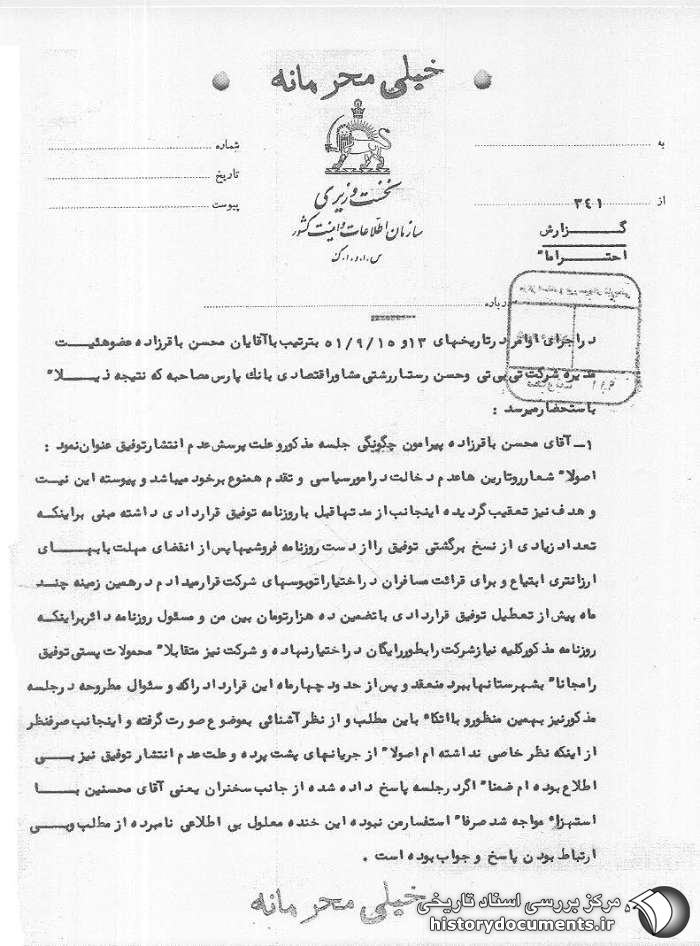 خیلی محرمانه
به
شماره
تاریخ
از ۳٤۱
پیوست
نخست وزیری
سازمان اطلاعات و امنیت کشور
س.ا.و.ا.ک
گزارش
احتراماً
درباره
در اجرای اوامر در تاریخهای ۱۳ و ۵۱/۹/۱۵ بترتیب با آقایان محسن باقرزاده عضو هئیت
مدیره شرکت تی بی تی و حسن رستار رشتی مشاور اقتصادی بانک پارس مصاحبه که نتیجه ذیلاً
باستحضار میرسد :
۱- آقای محسن باقرزاده پیرامون چگونگی جلسه مذکور و علت پرسش عدم انتشار توفیق عنوان نمود :
اصولاً شعار روتارین ها عدم دخالت در امور سیاسی و تقدم همنوع بر خود میباشد و پیوسته این نیت
و هدف نیز تعقیب گردیده اینجانب از مدتها قبل با روزنامه توفیق قراردادی داشته مبنی بر اینکه
تعداد زیادی از نسخ برگشتی توفیق را از دست روزنامه فروشیها پس از انقضای مهلت با بهای
ارزانتری ابتیاع و برای قرائت مسافران در اختیار اتوبوسهای شرکت قرار میدادم در همین زمینه چند
ماه پیش از تعطیل توفیق قراردادی با تضمین ده هزار تومان بین من و مسئول روزنامه دائر بر اینکه
روزنامه مذکور کلیه نیاز شرکت را بطور رایگان در اختیار نهاده و شرکت نیز متقابلاً محمولات پستی توفیق
را مجاناً بشهرستانها ببرد منعقد و پس از حدود چهار ماه این قرارداد راکد و سئوال مطروحه در جلسه
مذکور نیز بهمین منظور و با اتکاء باین مطلب و از نظر آشنائی بموضوع صورت گرفته و اینجانب صرفنظر
از اینکه نظر خاصی نداشته ام اصولاً از جریانهای پشت پرده و علت عدم انتشار توفیق نیز بی
اطلاع بوده ام ضمناً اگر در جلسه پاسخ داده شده از جانب سخنران یعنی آقای محسنین با
استهزاء مواجه شد صرفاً استفسار من نبوده این خنده معلول بی اطلاعی نامبرده از مطلب و بی
ارتباط بودن پاسخ و جواب بوده است .
خیلی محرمانه
مرکز بررسی اسناد تاریخی
historydocuments.ir